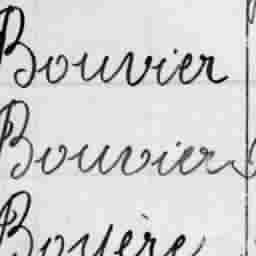 Bouvier
Bouvier
Boyère